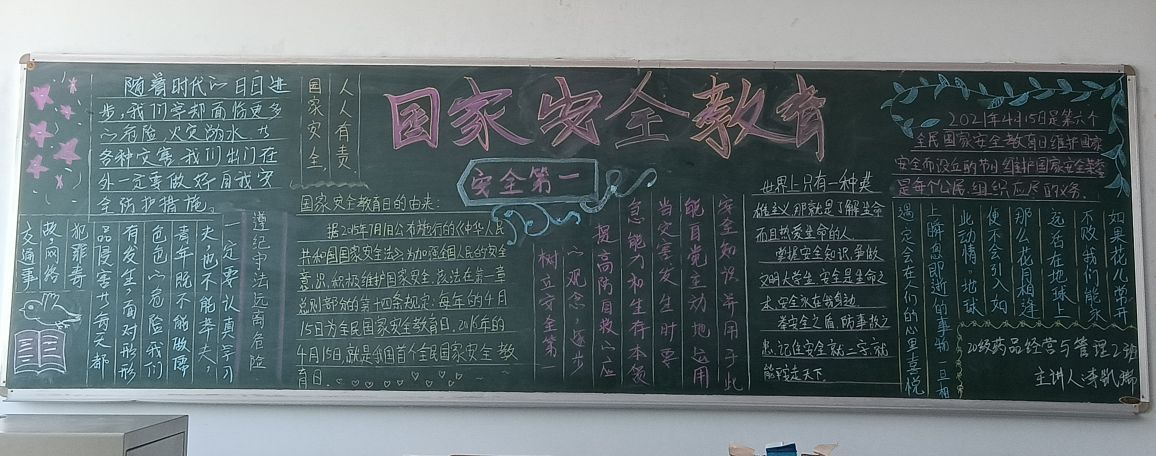 国家安全教育
安全第一
随着时代的日益进
步,我们学都面临更多
的危险,火灾、防水、共
各种灾害,我们出们在
外一定要做好自我安
全防护措施。
国家安全,
人人有责
国家安全教育日的由来:
据2015年7月1日公布施行的《中华人民
共和国国家安全法》为加强全国人民的安全
意识,积极维护国家安全,该法在第一章
总则部分的第十四条规定:每年的4月
15日为全民国家安全教育日,2016年的
4月15日,就是我国首个全民国家安全教
育日。
遵纪守法远离危险
一定要认真学习
夫也不能弃夫,
青年既不能做懦
色色的危险我们
有发生,面对形形
品侵害等每天都
犯罪毒
故,网络
交通事
安全知识并用于此
能自觉主动地运用
当灾害发生时要
急能力和生存本领
提高防自救的应
的观念,逐步
树立安全第一
世界上只有一种英
雄主义,那就是了解生命
而且热爱生命的人
掌握安全知识,争做
文明大学生,安全是生命之
本,安全永在每身边
举安全之盾,防事故之
患,记住安全就二字,就
能平安走天下.
2021年4月15日是第六个
全民国家安全教育日,维护国家
安全而设立的节日,维护国家安全
是每个公民、组织应尽的义务.
如果花儿常开
不败,我们能永
远站在地球上
那么花自相逢
便不会引人如
此动情,地球
上瞬息即逝的事物
遇定会在人们的心里喜悦
20级药品经营与管理2班
主讲人:李凯瑞